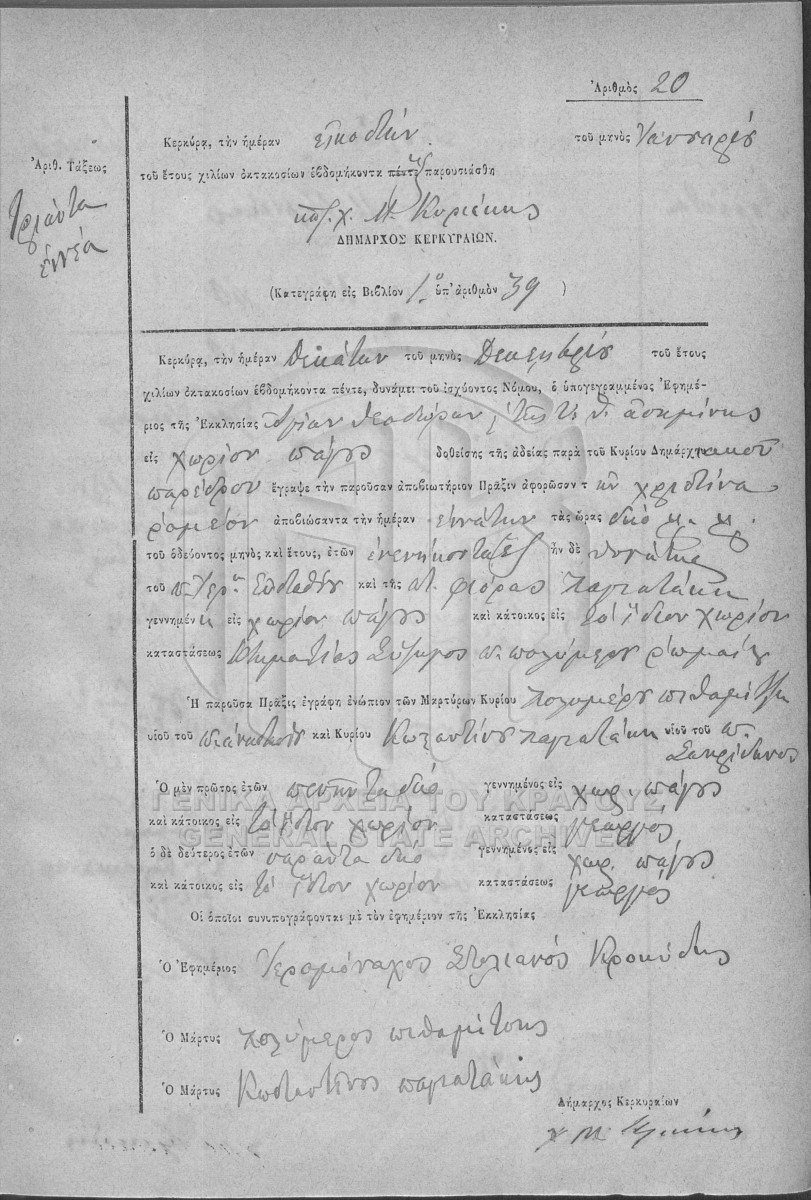 Ἀριθμὸς 20
Κερκύρᾳ, τὴν ἡμέραν εἰκοστὴν τοῦ μηνὸς Ἰανουαρίου
Ἀριθ. Τάξεως
τοῦ ἔτους χιλίων ὀκτακοσίων ἑβδομήκοντα πέντε ἓξ παρουσιάσθη
τριάντα
ἐννέα
Κυριάκης
ΔΗΜΑΡΧΟΣ ΚΕΡΚΥΡΑΙΩΝ.
(Κατεγράφη εἰς Βιβλίον 1ον ὑπ' ἀριθμὸν 39 )
Κερκύρᾳ, τὴν ἡμέραν δεκάτην τοῦ μηνὸς Δεκεμβρίου τοῦ ἔτους
χιλίων ὀκτακοσίων ἑβδομήκοντα πέντε, δυνάμει τοῦ ἰσχύοντος Νόμου, ὁ ὑπογεγραμμένος Ἐφημέ-
ριος τῆς Ἐκκλησίας Ἁγίων Θεοδώρων
εἰς χωρίον πάγους δοθείσης τῆς ἀδείας παρὰ τοῦ Κυρίου Δημάρχιακοῦ
παρέδρου ἔγραψε τὴν παροῦσαν ἀποβιωτήριον Πρᾶξιν ἀφορῶσαν τ ὴν χριστίνα
ρομεον ἀποβιώσαντα τὴν ἡμέραν ἐννάτην τὰς ὥρας δύο μ. μ.
τοῦ ὁδεύοντος μηνὸς καὶ ἔτους, ἐτῶν ἐνενήκοντα ἓξ ἦν δὲ θυγάτηρ
τοῦ π. Γερ. Ευσταθίου καὶ τῆς π. φιόρας παγιατάκη
γεννημέν η εἰς χωρίον πάγους καὶ κάτοικος εἰς τὸ ἴδιον χωρίον
καταστάσεως κτηματίας Σύζυγος π. πολύμερου
Ἡ παροῦσα Πρᾶξις ἐγράφη ἐνώπιον τῶν Μαρτύρων Κυρίου πολυμέρου πιθαμίτζη
υἱοῦ τοῦ π. ἀναστασίου καὶ Κυρίου Κωσταντίνου παγιατάκη υἱοῦ τοῦ π.
Σπυρίδωνος
Ὁ μὲν πρῶτος ἐτῶν πενῆντα δύο γεννημένος εἰς χωρ. πάγους
καὶ κάτοικος εἰς τὸ ἴδιον χωρίον καταστάσεως γεωργός
ὁ δὲ δεύτερος ἐτῶν σαράντα δύο γεννημένος εἰς χωρ. πάγους
καὶ κάτοικος εἰς τὸ ἴδιον χωρίον καταστάσεως γεωργός
Οἱ ὁποῖοι συνυπογράφονται μὲ τὸν ἐφημέριον τῆς Ἐκκλησίας
Ὁ Ἐφημέριος Ἱερομόναχος Στυλιανός Κροκίδης
Ὁ Μάρτυς πολύμερος πιθαμίτσης
Ὁ Μάρτυς Κωσταντῖνος παγιατάκης
Δήμαρχος Κερκυραίων
ΓΕΝΙΚΑ ΑΡΧΕΙΑ ΤΟΥ ΚΡΑΤΟΥΣ
GENERAL STATE ARCHIVES